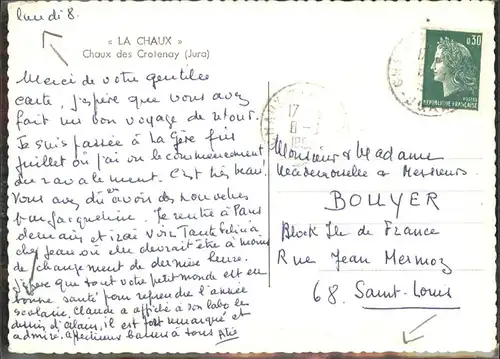 lundi 8.
« LA CHAUX »
Chaux des Crotenay (Jura)
Merci de votre gentille
carte, j'espère que vous avez
fait un bon voyage de retour.
Je suis passée à La Gère fin
juillet où j'ai vu le commencement
du ravalement. C'est très beau.
Vous avez dû avoir des nouvelles
par Jacqueline. Je rentre à Paris
demain et irai voir Tante
chez Jean où elle devrait être à moins
de changement de dernière heure.
J'espère que tout votre petit monde est en
bonne santé pour reprendre l'année
scolaire, Claude a affiché à son labo le
dessin d'Alain, il est fort remarqué et
admiré, affectueux baisers à tous
0,30
POSTES
REPUBLIQUE FRANÇAISE
17
8
Monsieur & Madame
Mesdemoiselle & Messieurs
BOUYER
Block Ile de France
Rue Jean Mermoz
68. Saint-Louis